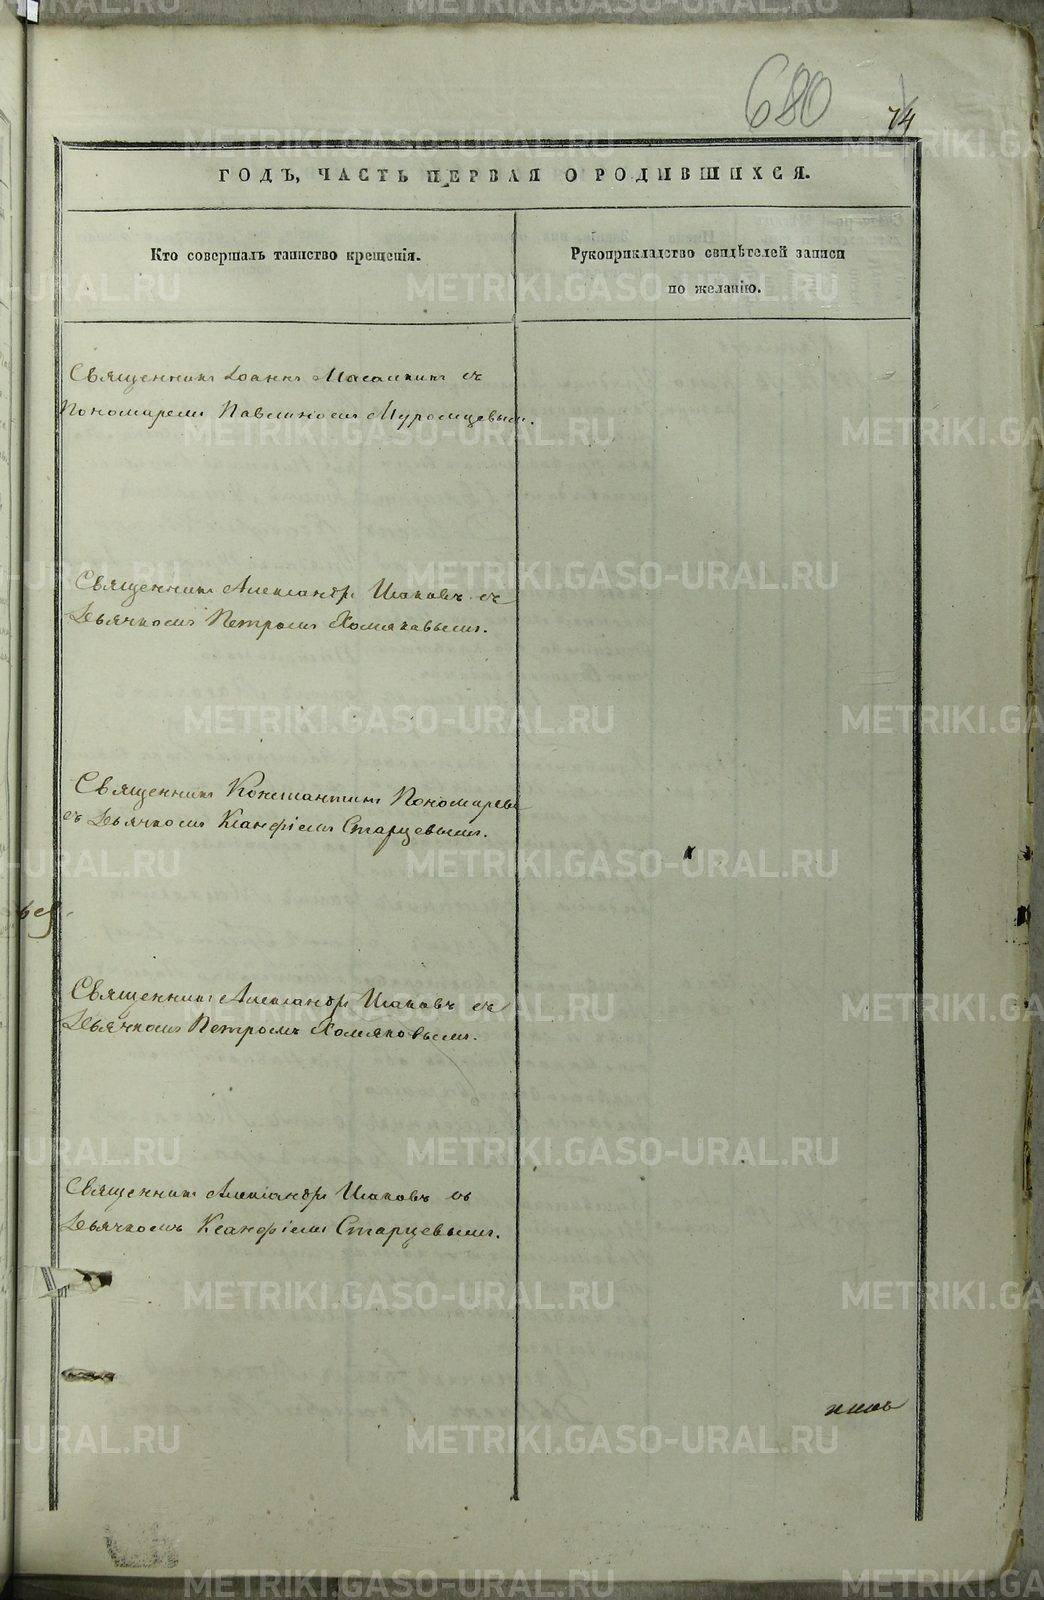 680
74
ГОДЪ, ЧАСТЬ ПЕРВАЯ О РОДИВШИХСЯ.
Кто совершалъ таинство крещенія.
Рукоприкладство свидѣтелей записи
по желанію.
Священникъ Іоаннъ Масалкинъ съ
Пономаремъ Павлиномъ Муромцевымъ.
Священникъ Александръ Исаковъ съ
Дьячкомъ Петромъ Хомяковымъ.
Священникъ Константинъ Пономаревъ
съ Дьячкомъ Ксанфіемъ Старцевымъ.
Священникъ Александръ Исаковъ съ
Дьячкомъ Петромъ Хомяковымъ.
Священникъ Александръ Исаковъ съ
Дьячкомъ Ксанфіемъ Старцевымъ.
METRIKI.GASO-URAL.RU